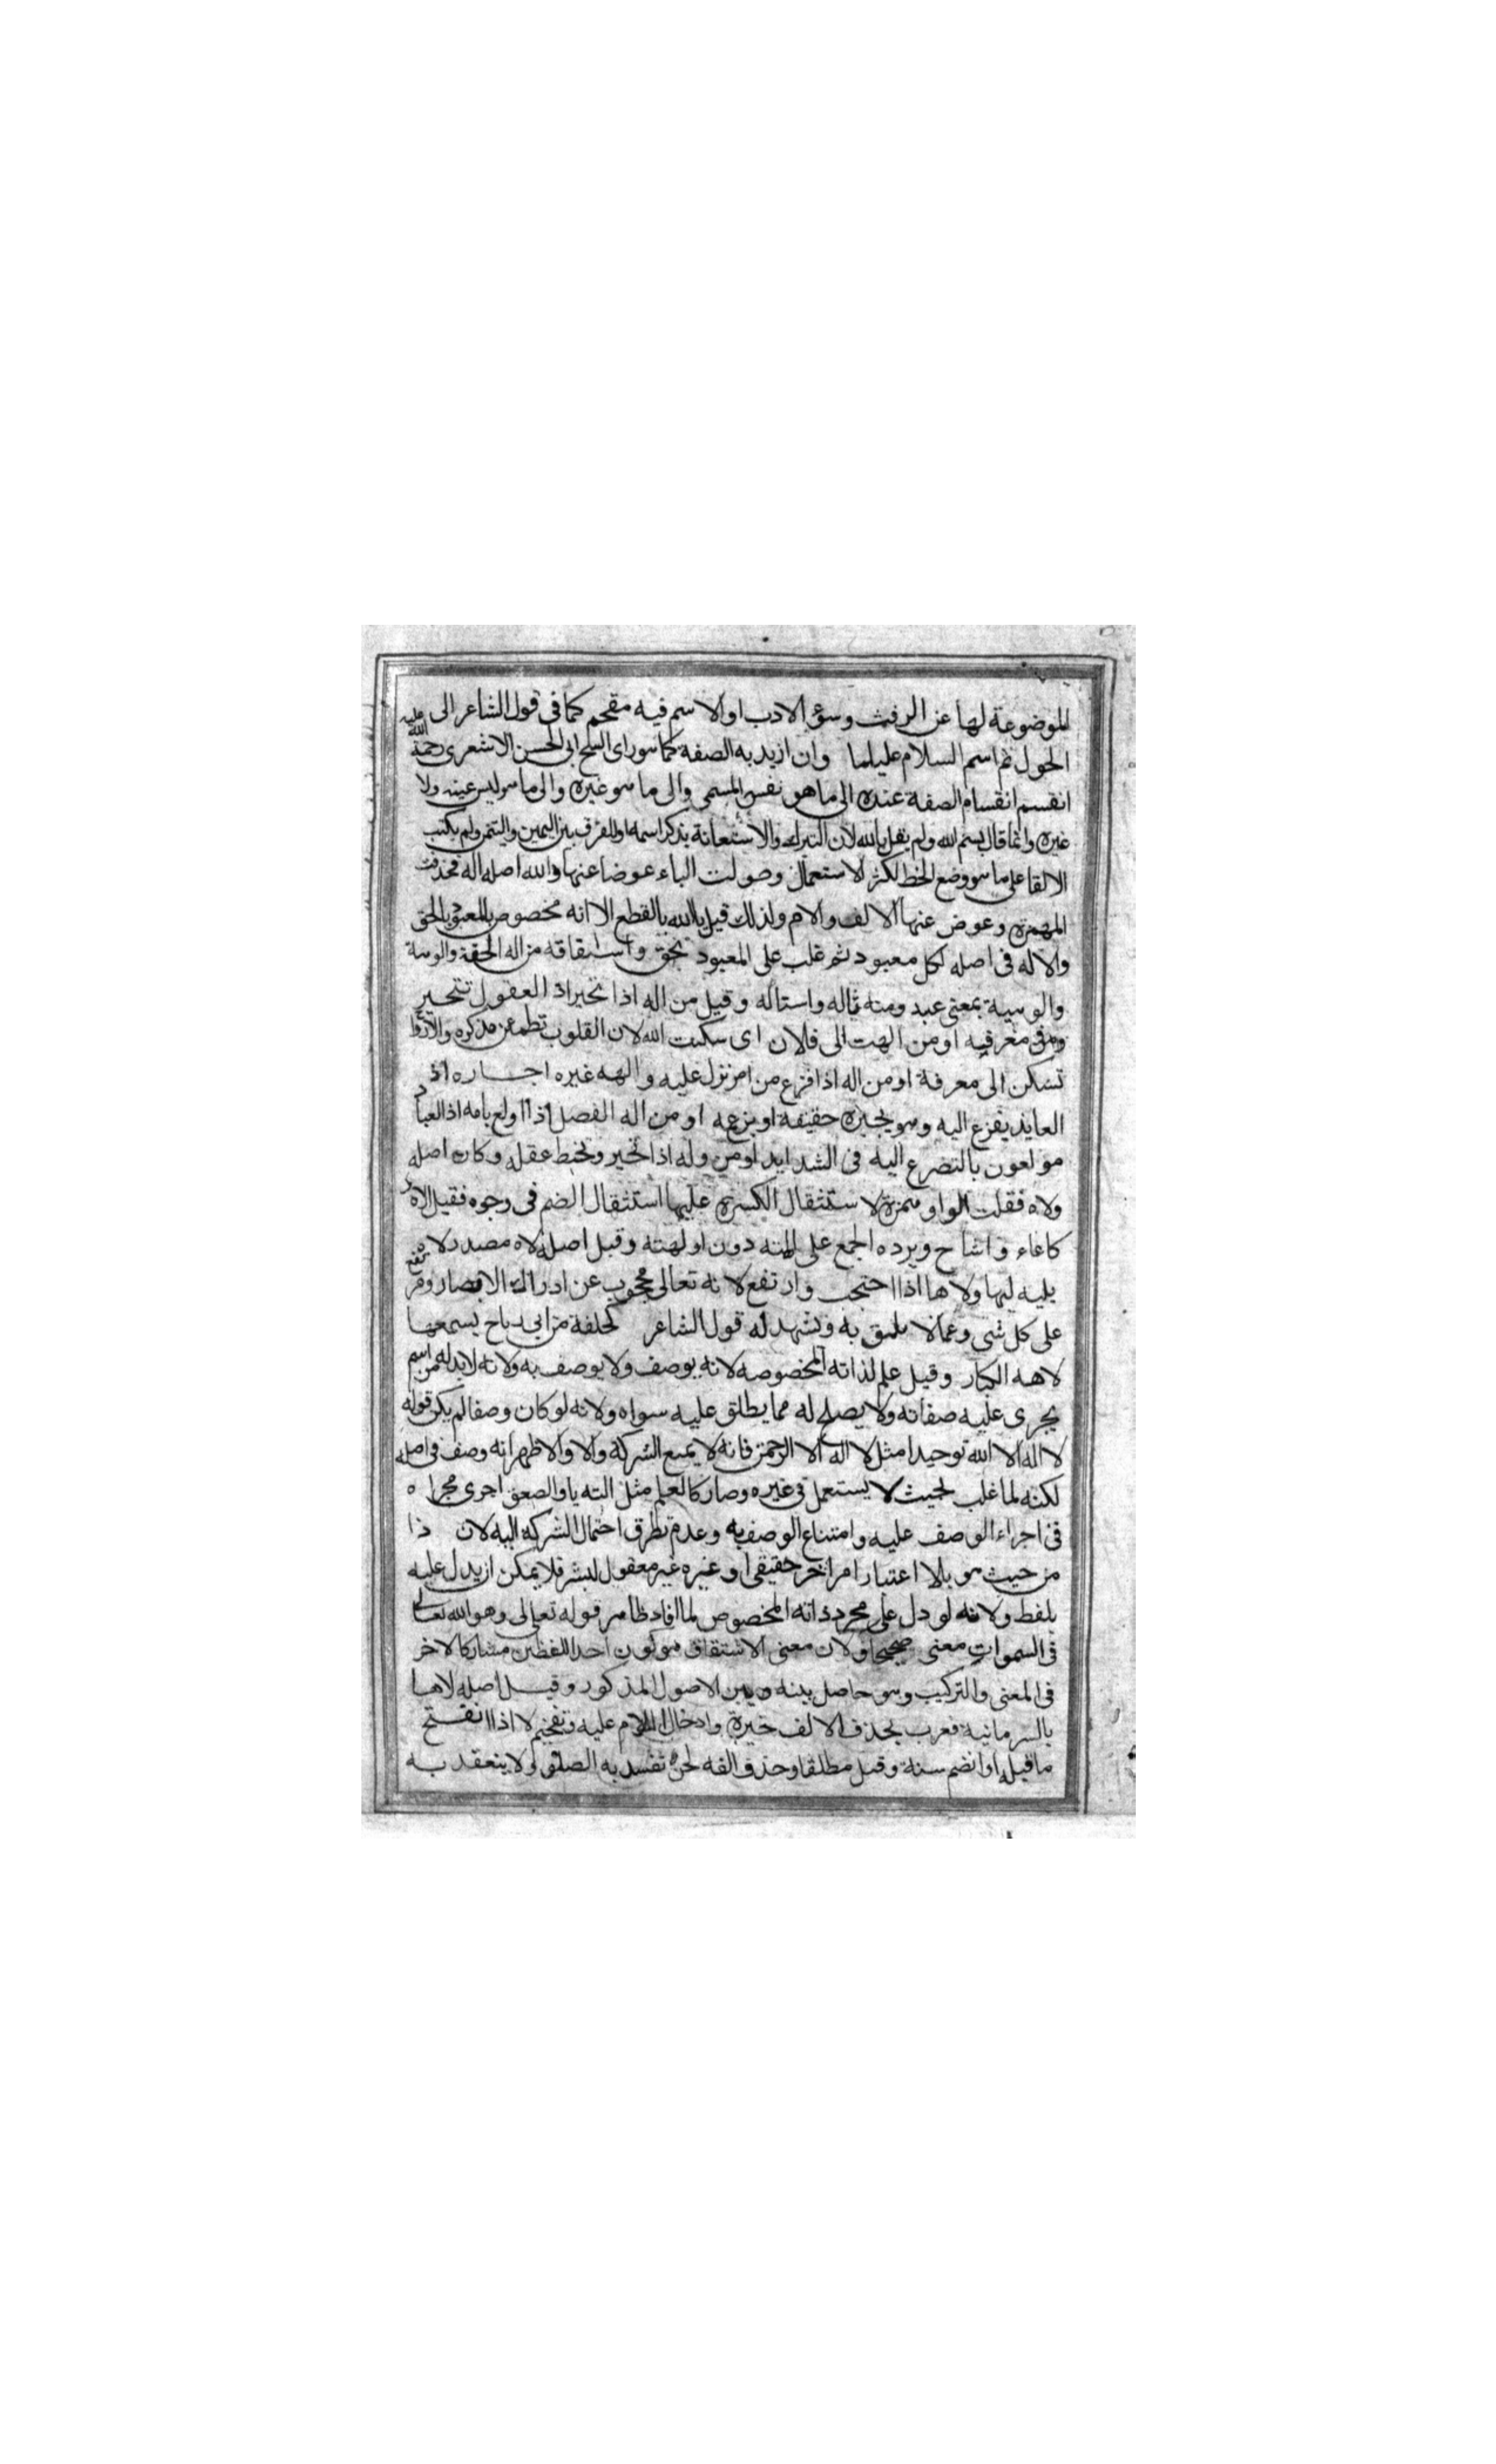 الموضوعة لها عن الرفث وسوء الادب او الاسم فيه مقحم كما فى قول الشاعر الى
الحول ثم اسم السلام عليكما وان اريد به الصفة كما هو راى الشيخ ابى الحسن الاشعرى رحمة الله عليه
انقسم انقسام الصفة عنده الى ما هو نفس المسمى والى ما هو غيره والى ما هو ليس عينه ولا
غيره وانما قال بسم الله ولم يقل بالله لان التبرك والاستعانة بذكر اسمه او للفرق بين اليمين والتيمن ولم يكتب
الالف على ما هو وضع الخط لكثرة الاستعمال وطولت الباء عوضا عنها والله اصله اله فحذفت
الهمزة وعوض عنها الالف والام ولذلك قيل يا الله بالقطع الا انه مخصوص بالمعبود بالحق
والاله فى اصله لكل معبود ثم غلب على المعبود بحق واشتقاقه من اله
بمعنى عبد ومنه تاله واستاله وقيل من اله اذا تحير اذ العقول تتحير
فى معرفته او من الهت الى فلان اى سكنت الله لان القلوب تطمئن بذكره والارواح
تسكن الى معرفة او من اله اذا فزع من امر نزل عليه والهه غيره اجاره اذ
العايذ يفزع اليه وهو يجيره حقيقة او بزعمه او من اله الفصل اذا اولع بامه اذ العباد
مولعون بالتضرع اليه فى الشدايد او من وله اذا تحير وتخبط عقله وكان اصله
ولاه فقلبت الواو همزة لاستثقال الكسرة عليها استثقال الضم فى وجوه فقيل الاه
كاعاء واشاح ويرده الجمع على الهته دون اولهته وقيل اصله لاه مصدر لاه
يليه ليها ولاها اذا احتجب وارتفع لانه تعالى محجوب عن ادراك الابصار ومرتفع
على كل شى وعما لا يليق به ويشهد له قول الشاعر كحلفة من ابى رباح يسمعها
لاهه الكبار وقيل علم لذاته المخصوصه لانه يوصف ولا يوصف به ولانه لا بد له من اسم
يجرى عليه صفاته ولا يصلح له مما يطلق عليه سواه ولانه لو كان وصفا لم يكن قوله
لا اله الا الله توحيدا مثل لا اله الا الرحمن فانه لا يمنع الشركة والا والاظهر انه وصف فى اصله
لكنه لما غلب بحيث لا يستعمل فى غيره وصار كالعلم مثل الثريا والصعق اجرى مجراه
فى اجراء الوصف عليه وامتناع الوصف به وعدم تطرق احتمال الشركه اليه لان ذا
من حيث هو بلا اعتبار امر اخر حقيقى او غيره غير معقول للبشر فلا يمكن ان يدل عليه
بلفظ ولانه لو دل على مجرد ذاته المخصوص لما افاد ظاهر قوله تعالى وهو الله تعالى
فى السموات معنى صحيحا ولان معنى الاشتقاق هو كون احد اللفظين مشاركا لاخر
فى المعنى والتركيب وهو حاصل بينه وبين الاصول المذكور وقيل اصله لاها
بالسريانية فعرب بحذف الالف وادخال اللام عليه وتفخيم لا اذا انفتح
ما قبله او انضم سنة وقيل مطلقا وحذف الفه لحن تفسد به الصلوة ولا ينعقد به